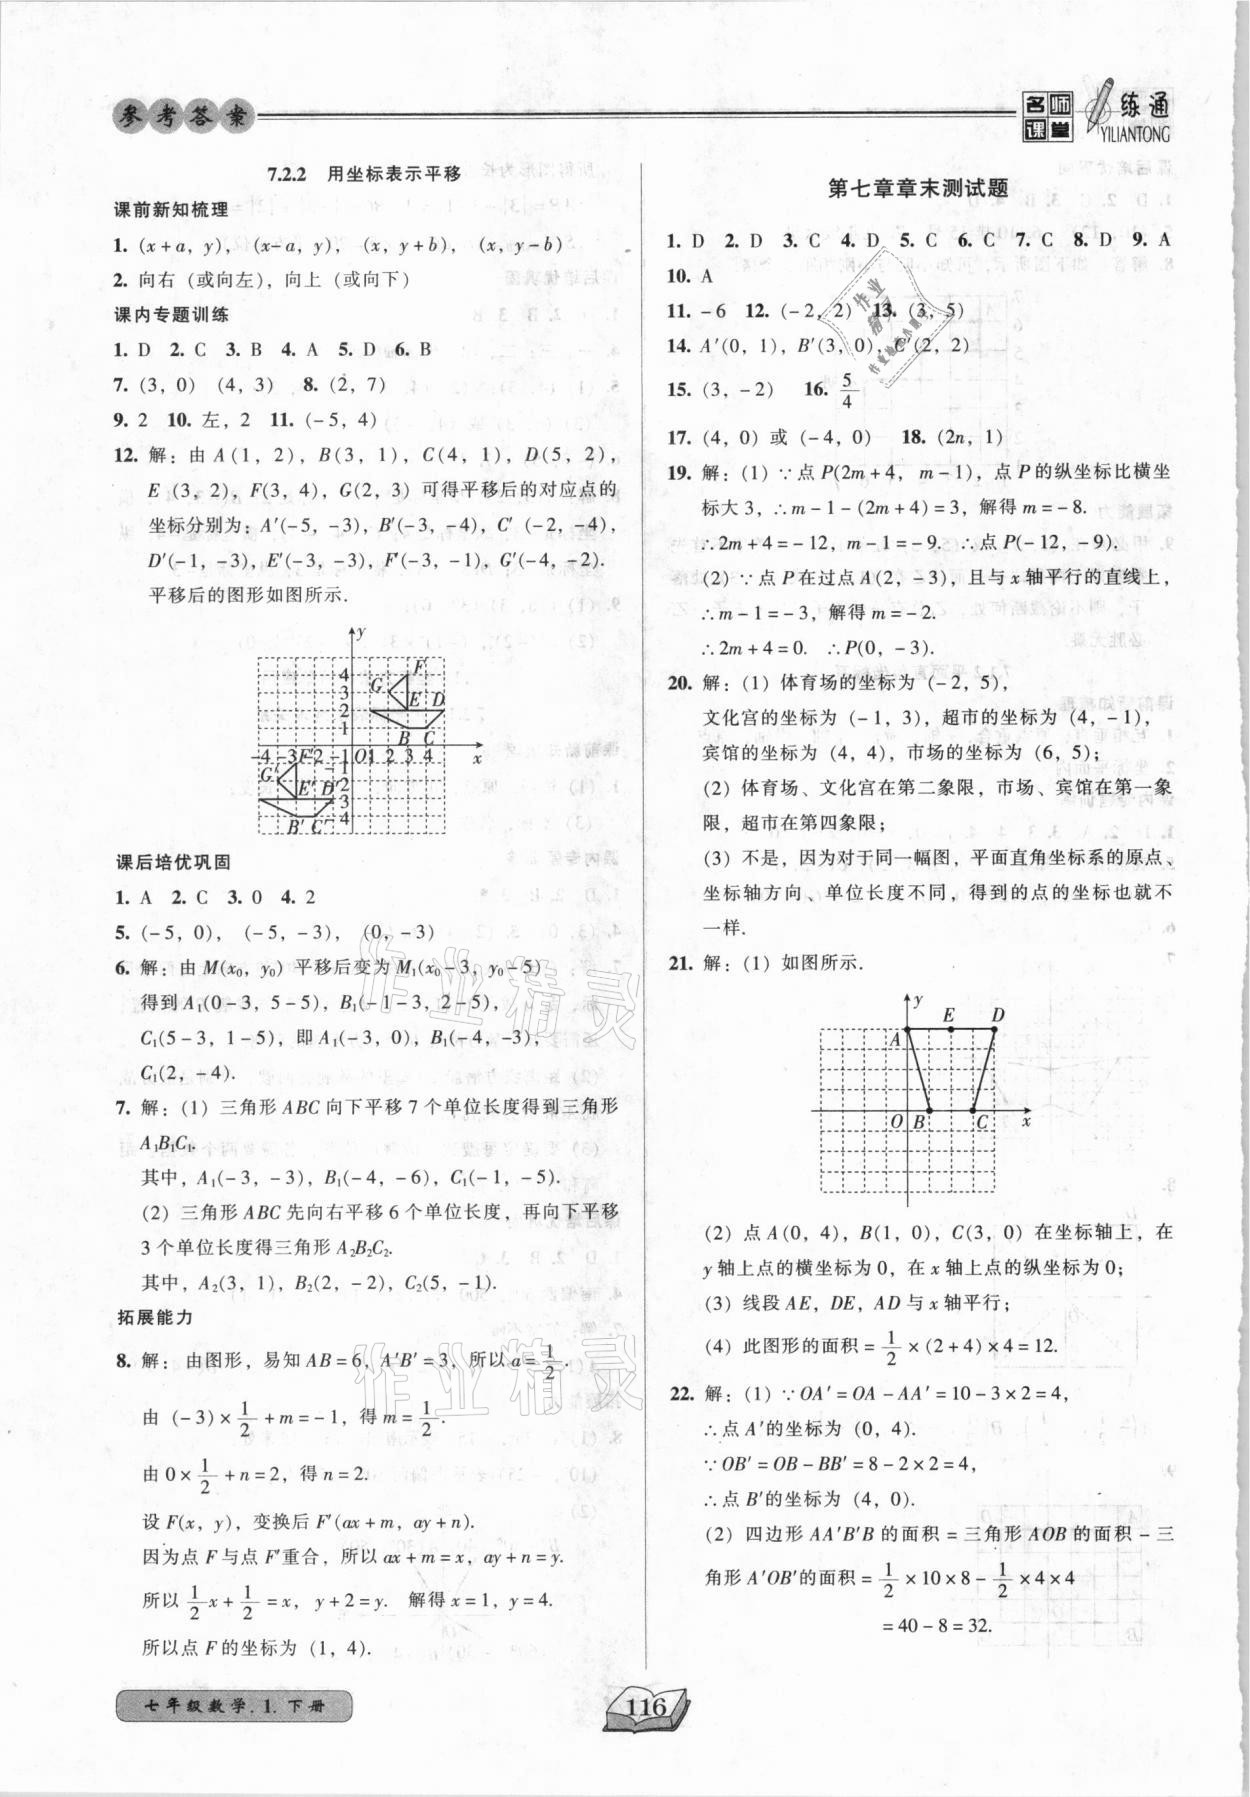 参考答案
名师课堂
一练通
YILIANTONG
7.2.2 用坐标表示平移
课前新知梳理
1. (x+a, y), (x-a, y), (x, y+b), (x, y-b)
2. 向右(或向左), 向上(或向下)
课内专题训练
1. D 2. C 3. B 4. A 5. D 6. B
7. (3, 0) (4, 3) 8. (2, 7)
9. 2 10. 左, 2 11. (-5, 4)
12. 解: 由 A(1, 2), B(3, 1), C(4, 1), D(5, 2),
E (3, 2), F(3, 4), G(2, 3) 可得平移后的对应点的
坐标分别为: A′(-5, -3), B′(-3, -4), C′ (-2, -4),
D′(-1, -3), E′(-3, -3), F′(-3, -1), G′(-4, -2).
平移后的图形如图所示.
课后培优巩固
1. A 2. C 3. 0 4. 2
5. (-5, 0), (-5, -3), (0, -3)
6. 解: 由 M(x₀, y₀) 平移后变为 M₁(x₀-3, y₀-5)
得到 A₁(0-3, 5-5), B₁(-1-3, 2-5),
C₁(5-3, 1-5), 即 A₁(-3, 0), B₁(-4, -3),
C₁(2, -4).
7. 解: (1) 三角形 ABC 向下平移 7 个单位长度得到三角形
A₁B₁C₁.
其中, A₁(-3, -3), B₁(-4, -6), C₁(-1, -5).
(2) 三角形 ABC 先向右平移 6 个单位长度, 再向下平移
3 个单位长度得三角形 A₂B₂C₂.
其中, A₂(3, 1), B₂(2, -2), C₂(5, -1).
拓展能力
8. 解: 由图形, 易知 AB=6, A′B′=3, 所以 a=1/2.
由 (-3)×1/2+m=-1, 得 m=1/2.
由 0×1/2+n=2, 得 n=2.
设 F(x, y), 变换后 F′(ax+m, ay+n).
因为点 F 与点 F′重合, 所以 ax+m=x, ay+n=y.
所以 1/2x+1/2=x, y+2=y. 解得 x=1, y=4.
所以点 F 的坐标为 (1, 4).
第七章章末测试题
1. D 2. D 3. C 4. D 5. C 6. C 7. C 8. D 9. A
10. A
11. -6 12. (-2, 2) 13. (3, 5)
14. A′(0, 1), B′(3, 0), C′(2, 2)
15. (3, -2) 16. 5/4
17. (4, 0) 或 (-4, 0) 18. (2n, 1)
19. 解: (1) ∵点 P(2m+4, m-1), 点 P 的纵坐标比横坐
标大 3, ∴m-1-(2m+4)=3, 解得 m=-8.
∴2m+4=-12, m-1=-9. ∴点 P(-12, -9).
(2) ∵点 P 在过点 A(2, -3), 且与 x 轴平行的直线上,
∴m-1=-3, 解得 m=-2.
∴2m+4=0. ∴P(0, -3).
20. 解: (1) 体育场的坐标为 (-2, 5),
文化宫的坐标为 (-1, 3), 超市的坐标为 (4, -1),
宾馆的坐标为 (4, 4), 市场的坐标为 (6, 5);
(2) 体育场、文化宫在第二象限, 市场、宾馆在第一象
限, 超市在第四象限;
(3) 不是, 因为对于同一幅图, 平面直角坐标系的原点、
坐标轴方向、单位长度不同, 得到的点的坐标也就不
一样.
21. 解: (1) 如图所示.
(2) 点 A(0, 4), B(1, 0), C(3, 0) 在坐标轴上, 在
y 轴上点的横坐标为 0, 在 x 轴上点的纵坐标为 0;
(3) 线段 AE, DE, AD 与 x 轴平行;
(4) 此图形的面积=1/2×(2+4)×4=12.
22. 解: (1) ∵OA′=OA-AA′=10-3×2=4,
∴点 A′的坐标为 (0, 4).
∵OB′=OB-BB′=8-2×2=4,
∴点 B′的坐标为 (4, 0).
(2) 四边形 AA′B′B 的面积=三角形 AOB 的面积-三
角形 A′OB′的面积=1/2×10×8-1/2×4×4
=40-8=32.
七年级数学.1.下册
116
作业精灵
作业精灵